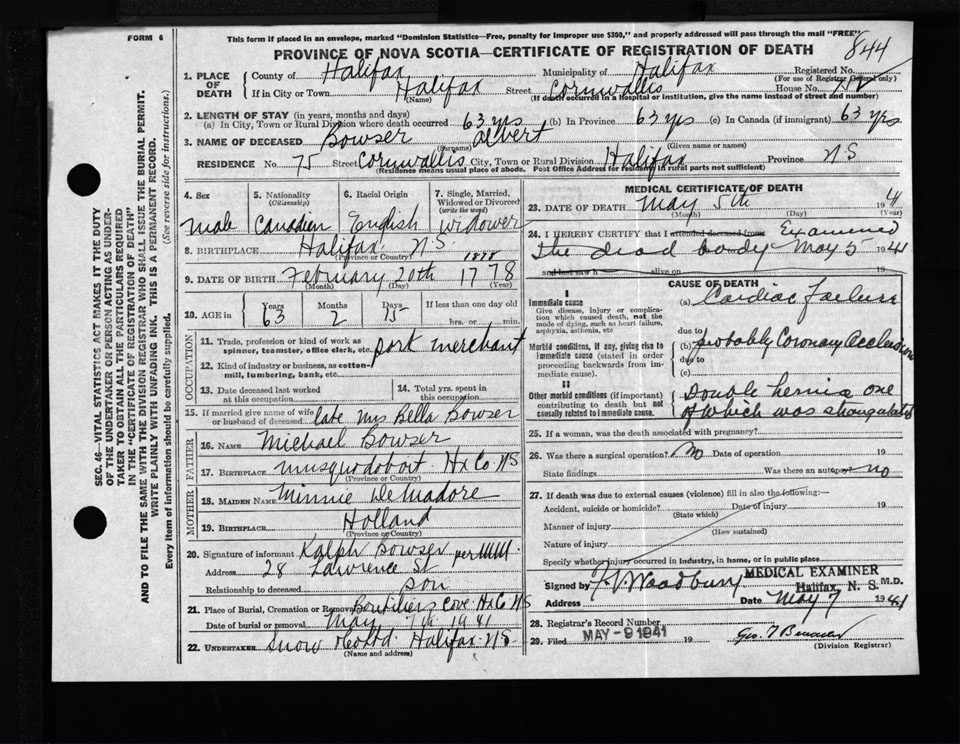 FORM 6
This form if placed in an envelope, marked "Dominion Statistics—Free, penalty for improper use $300," and properly addressed will pass through the mail "FREE"
844
PROVINCE OF NOVA SCOTIA—CERTIFICATE OF REGISTRATION OF DEATH
1. PLACE OF DEATH
County of Halifax Municipality of Halifax Registered No.
(For use of Registrar General only)
If in City or Town Halifax Street Cornwallis House No.
(Name) (If death occurred in a hospital or institution, give the name instead of street and number)
2. LENGTH OF STAY (in years, months and days)
(a) In City, Town or Rural Division where death occurred 63 yrs (b) In Province 63 yrs (c) In Canada (if immigrant) 63 yrs
3. NAME OF DECEASED Bowser Albert
(Surname) (Given name or names)
RESIDENCE No. 75 Street Cornwallis City, Town or Rural Division Halifax Province NS
(Residence means usual place of abode. Post Office Address for residents in rural parts not sufficient)
4. Sex
Male
5. Nationality
(Citizenship)
Canadian
6. Racial Origin
English
7. Single, Married, Widowed or Divorced
(write the word)
Widower
8. BIRTHPLACE Halifax NS
(Province or Country)
1878
9. DATE OF BIRTH February 20th 1778
(Month) (Day) (Year)
10. AGE in
Years 63
Months 2
Days 15
If less than one day old
hrs. or min.
OCCUPATION
11. Trade, profession or kind of work as spinner, teamster, office clerk, etc. pork merchant
12. Kind of industry or business, as cotton-mill, lumbering, bank, etc.
13. Date deceased last worked at this occupation
14. Total yrs. spent in this occupation
15. If married give name of wife or husband of deceased late Mrs Bella Bowser
FATHER
16. NAME Michael Bowser
17. BIRTHPLACE Musquodoboit Hx Co NS
(Province or Country)
MOTHER
18. MAIDEN NAME Minnie
19. BIRTHPLACE Holland
(Province or Country)
20. Signature of informant Ralph Bowser per
Address 28 Lawrence St
Relationship to deceased son
21. Place of Burial, Cremation or Removal Boutiliers Cove Hx Co NS
Date of burial or removal May 7th 1941
22. UNDERTAKER Snow & Co Ltd Halifax NS
(Name and address)
MEDICAL CERTIFICATE OF DEATH
23. DATE OF DEATH May 5th 1941
(Month) (Day)
24. I HEREBY CERTIFY that I attended deceased from Examined
The dead body May 5 1941
and last saw h alive on 19
CAUSE OF DEATH
I
Immediate cause
Give disease, injury or complication which caused death, not the mode of dying, such as heart failure, asphyxia, asthenia, etc
(a) Cardiac failure
due to
Morbid conditions, if any, giving rise to immediate cause (stated in order proceeding backwards from immediate cause).
(b) probably Coronary
due to
(c)
II
Other morbid conditions (if important) contributing to death but not causally related to immediate cause.
Double hernia one
of which was strangulated
25. If a woman, was the death associated with pregnancy?
26. Was there a surgical operation? no Date of operation 19
State findings Was there an autopsy? no
27. If death was due to external causes (violence) fill in also the following:—
Accident, suicide or homicide? Date of injury 19
(State which)
Manner of injury
(How sustained)
Nature of injury
Specify whether injury occurred in industry, in home, or in public place
MEDICAL EXAMINER
Signed by Woodbury Halifax, N. S. M.D.
Address Date May 7 1941
28. Registrar's Record Number
29. Filed MAY -9 1941 19
(Division Registrar)
SEC. 46—VITAL STATISTICS ACT MAKES IT THE DUTY
OF THE UNDERTAKER OR PERSON ACTING AS UNDER-
TAKER TO OBTAIN ALL THE PARTICULARS REQUIRED
IN THE "CERTIFICATE OF REGISTRATION OF DEATH"
AND TO FILE THE SAME WITH THE DIVISION REGISTRAR WHO SHALL ISSUE THE BURIAL PERMIT.
WRITE PLAINLY WITH UNFADING INK. THIS IS A PERMANENT RECORD.
Every item of information should be carefully supplied. (See reverse side for instructions.)